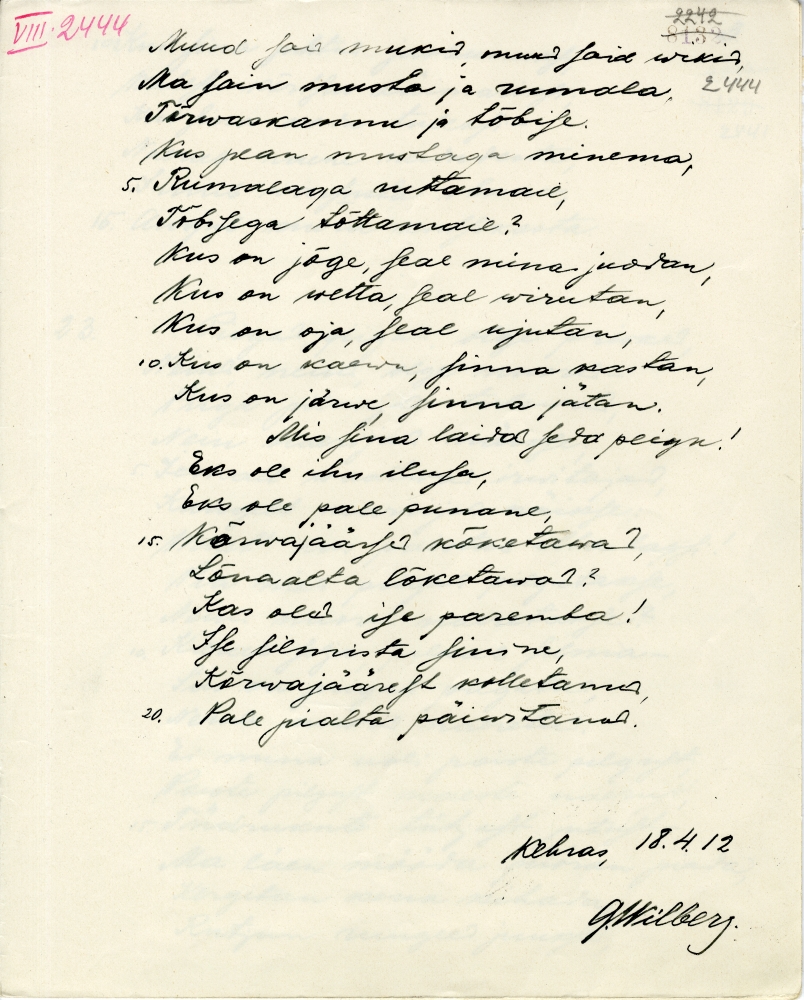 VIII. 2444
2242
8132
2444
Muud said mukid, muud said wirid,
Ma sain musta ja rumala,
Tõrwaskannu ja tõbise.
Kus pean mustaga minema,
5. Rumalaga ruttamaie,
Tõbisega tõttamaie?
Kus on jõge, seal mina joodan,
Kus on wetta, seal wirutan,
Kus on oja, seal ujutan,
10. Kus on kaewu, sinna kastan,
Kus on järwe, sinna jätan.
Mis sina laidad seda peigu!
Eks ole ihu ilusa,
Eks ole pale punane,
15. Kõrwajäärsed kõketawad,
Lõnaalta lõketawad?
Kas oled ise paremba!
Ise silmista sinine,
Kõrwajäärest kolletanud,
20. Pale pialta päiwitanud.
Kehras, 18.4.12
G. Wilberg.